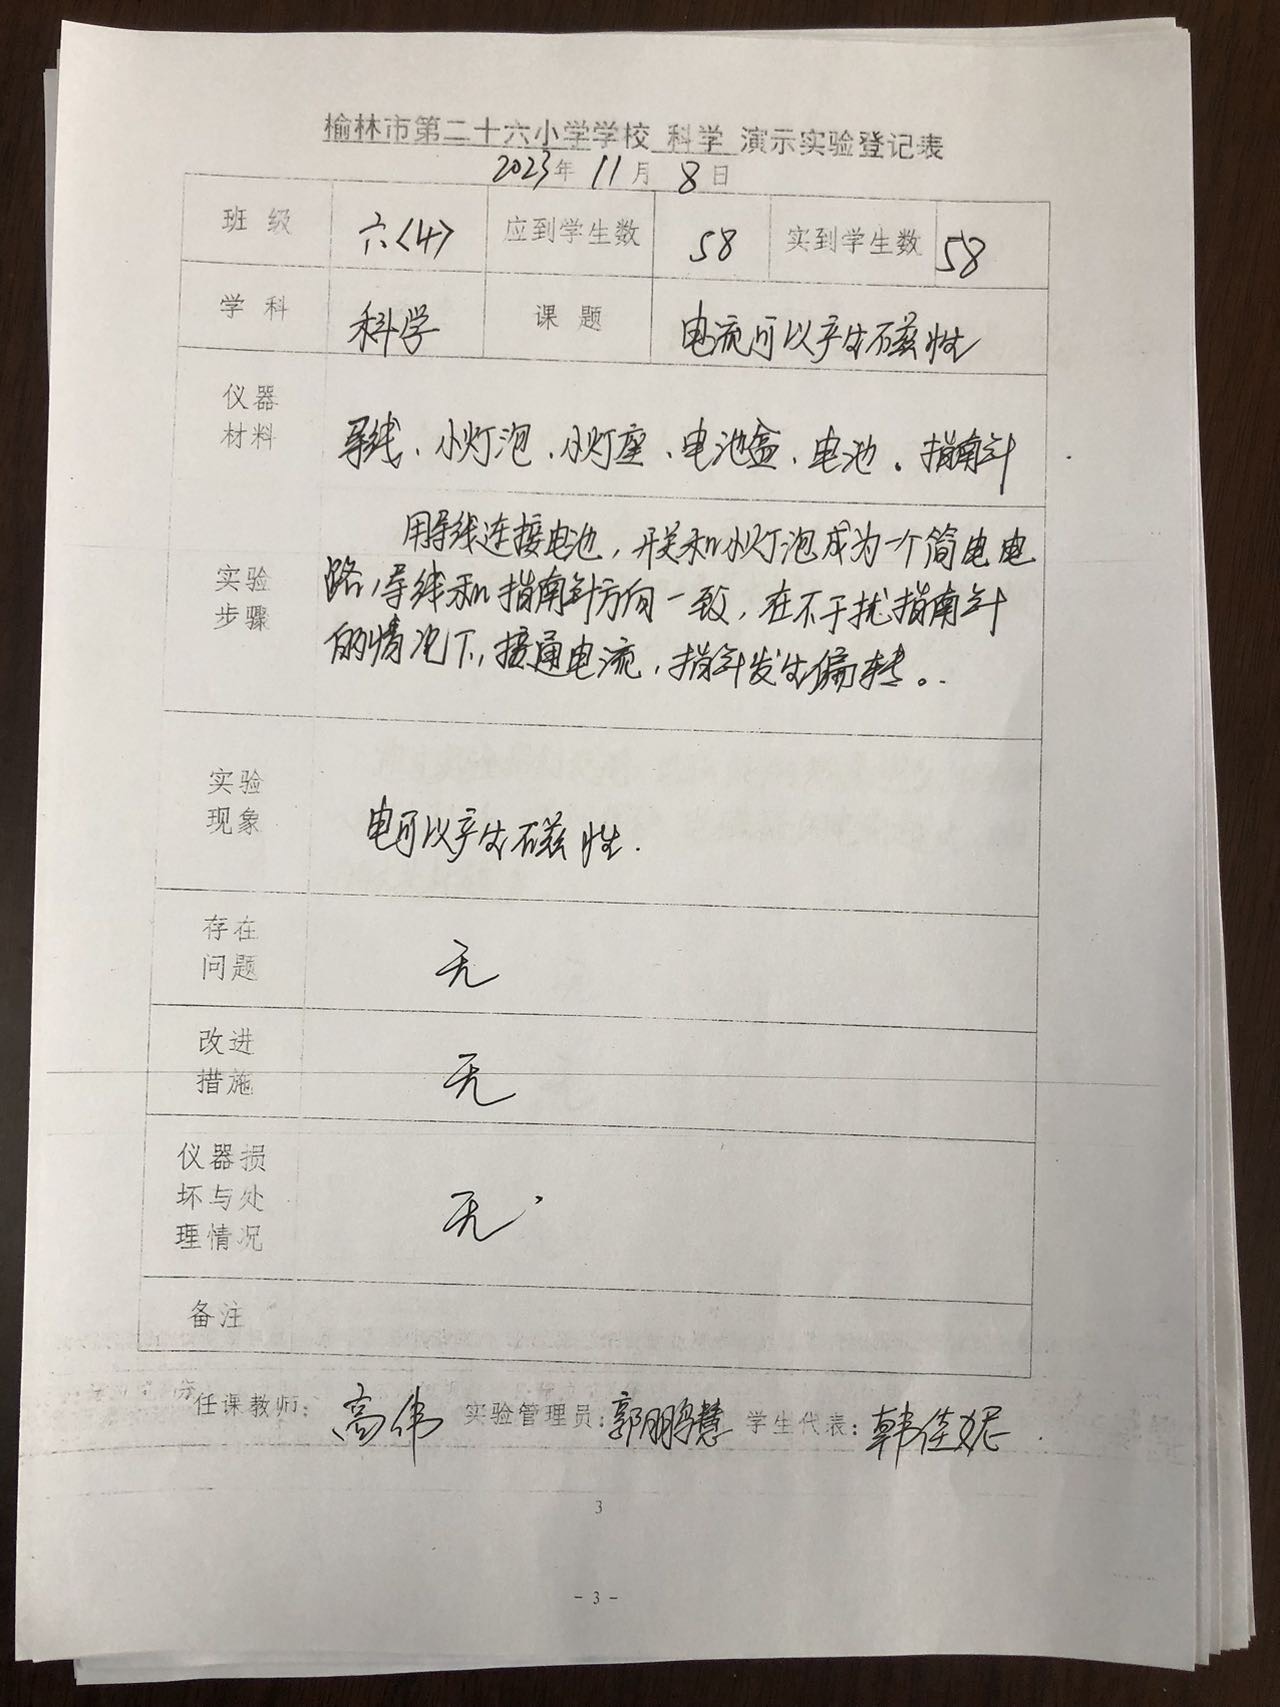 榆林市第二十六小学学校 科学 演示实验登记表
2023年 11月 8日
班 级 六<4> 应到学生数 58 实到学生数 58
学 科 科学 课 题 电流可以产生磁性
仪器
材料
导线、小灯泡、小灯座、电池盒、电池、指南针
实验
步骤
用导线连接电池,开关和小灯泡成为一个简电电
路,导线和指南针方向一致,在不干扰指南针
的情况下,接通电流,指针发生偏转。
实验
现象
电可以产生磁性.
存在
问题
无
改进
措施
无
仪器损
坏与处
理情况
无
备注
任课教师: 高伟 实验管理员: 郭鹏慧 学生代表: 韩佳妮
3
- 3 -